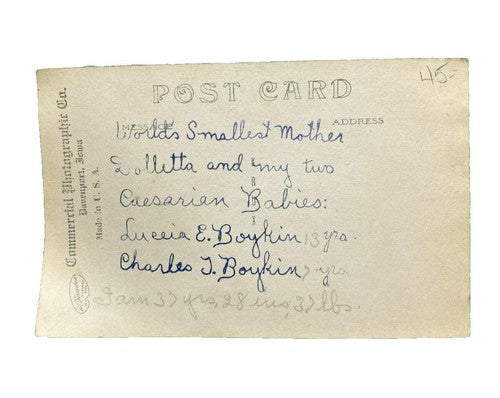 45-
POST CARD
MESSAGE
ADDRESS
World's Smallest Mother
Dolletta and my two
Caesarian Babies:
Luceia E. Boykin 13 yrs.
Charles T. Boykin 7 yrs.
I am 37 yrs, 28 ins, 37 lbs.
Commercial Photographic Co.
Davenport, Iowa
Made in U.S.A.